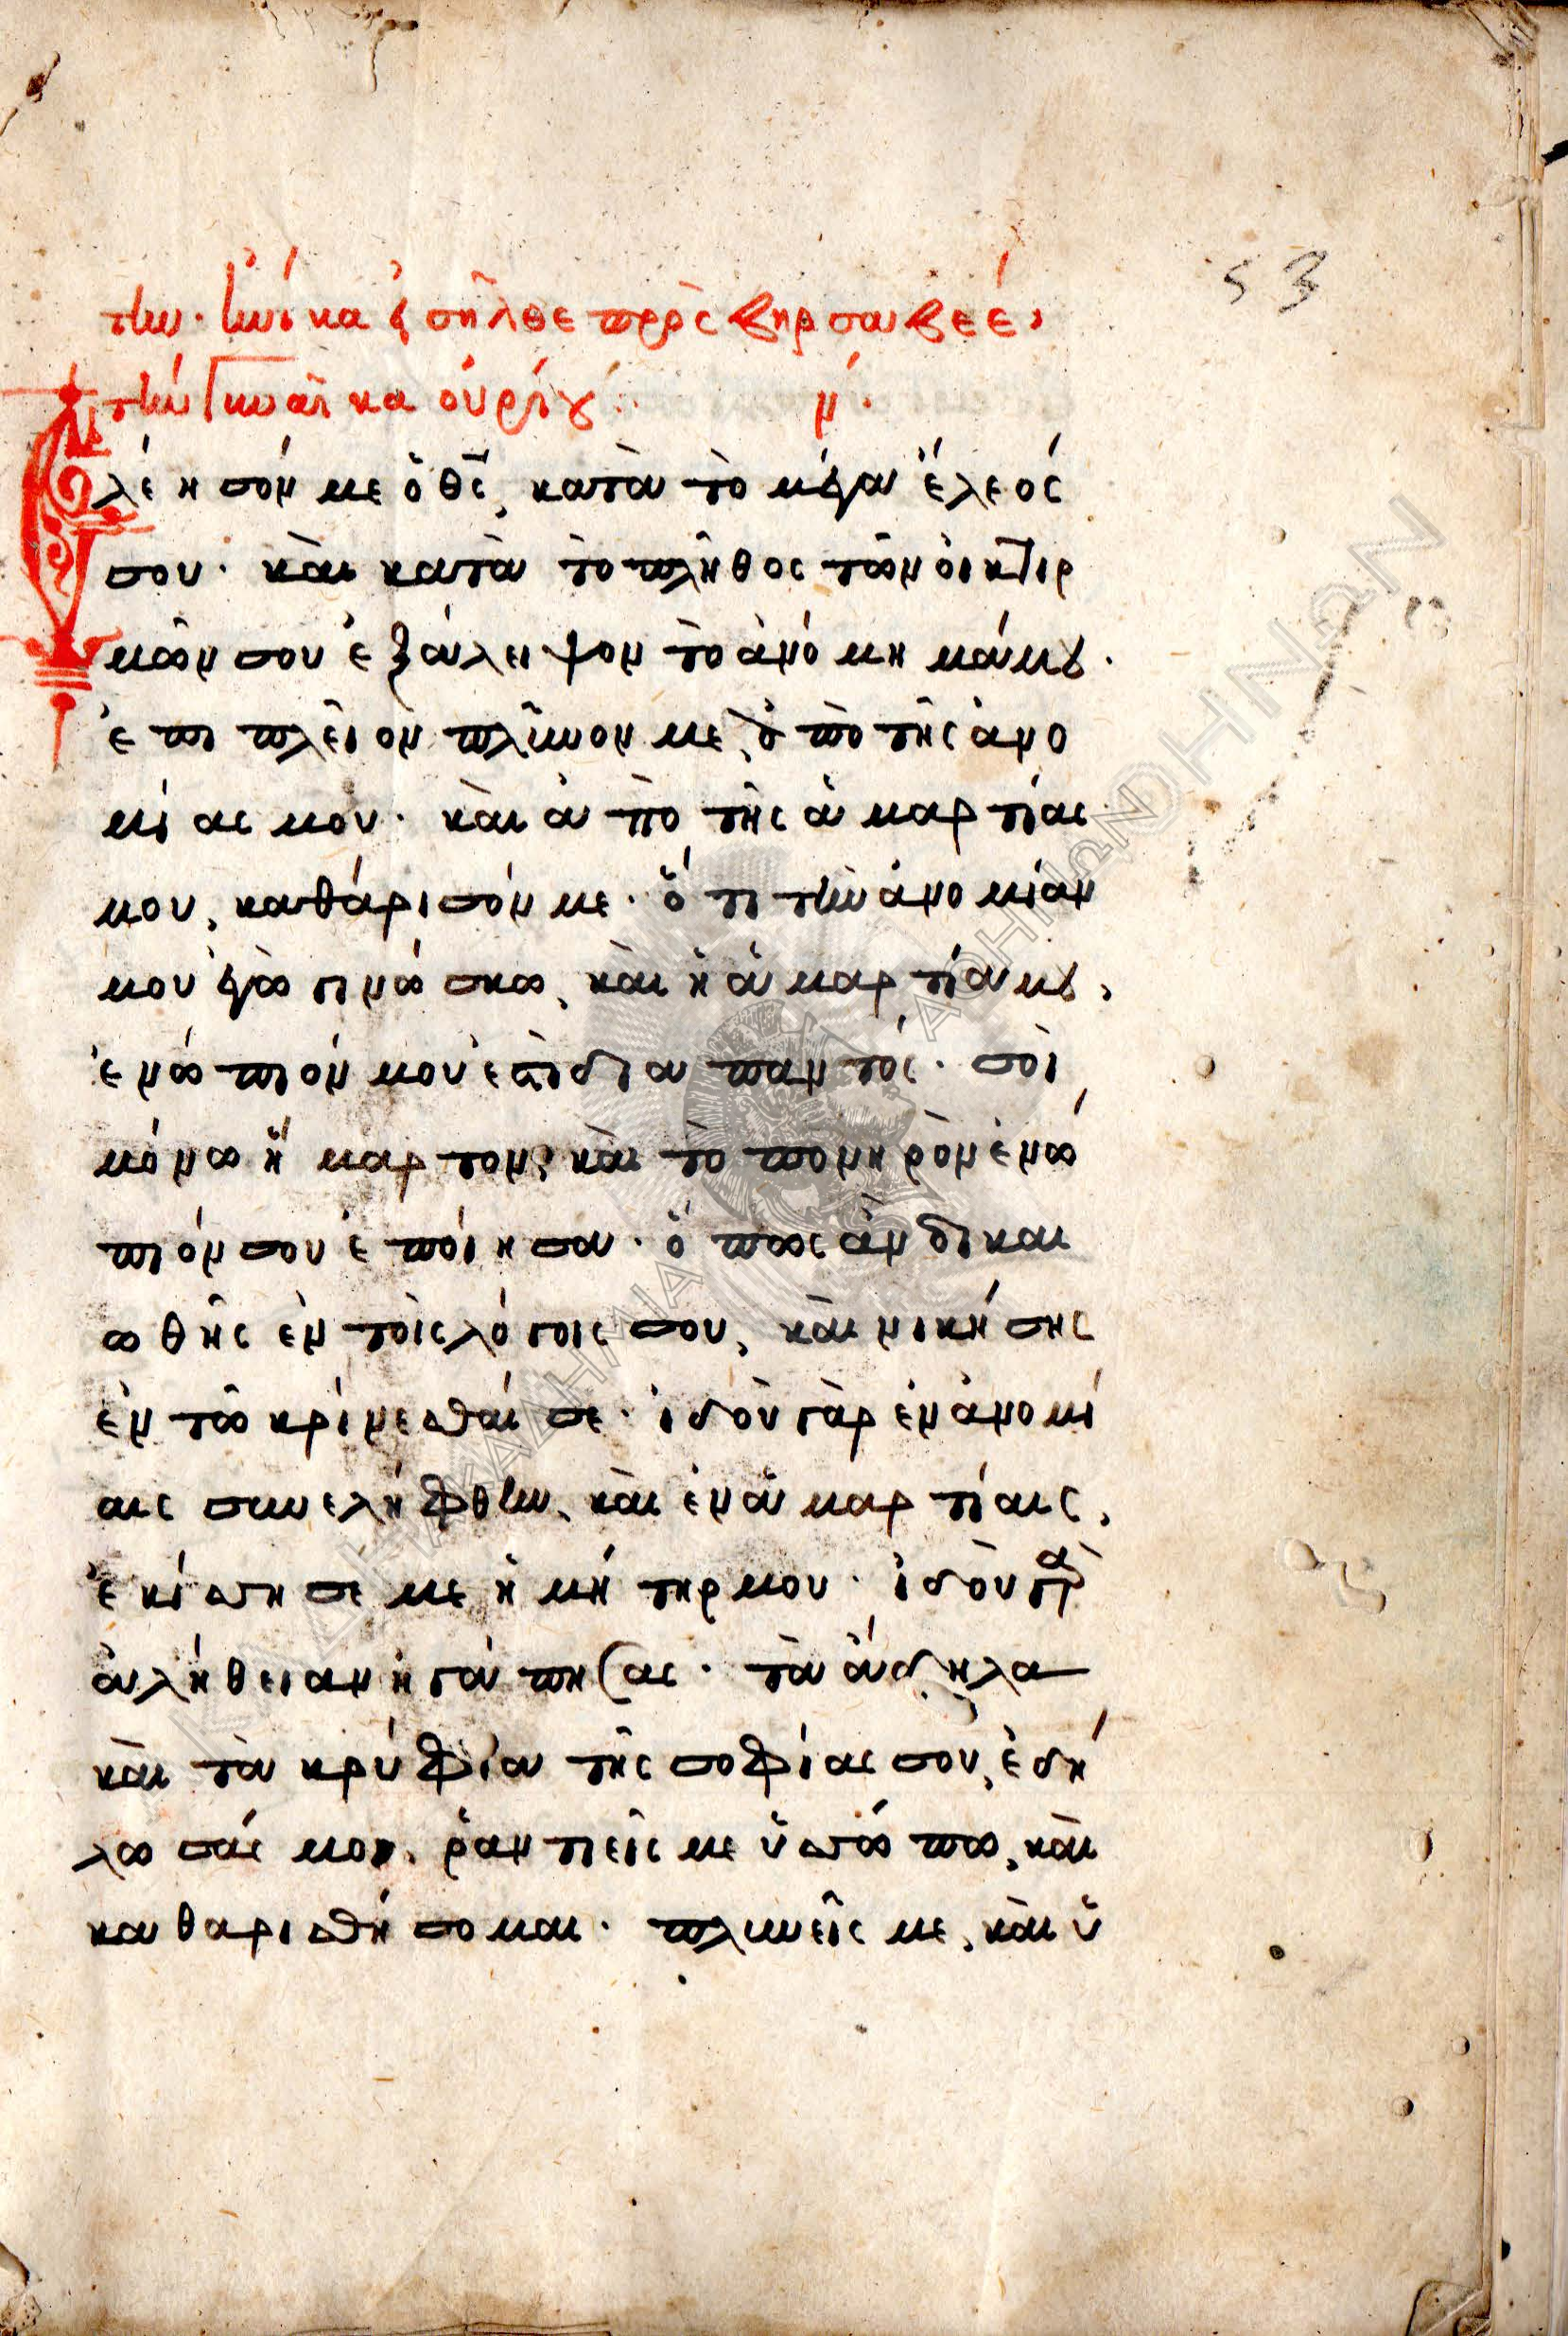 53
την. ἡνίκα εἰσῆλθε πρὸς βηρσαβεέ,
τὴν γυναῖκα οὐρίου. ν´.
Ἐλέησόν με ὁ θς, κατὰ τὸ μέγα ἔλεός
σου. καὶ κατὰ το πλῆθος τῶν οἰκτιρ
μῶν σου ἐξάλειψον τὸ ἀνόμημά μου.
ἐπιπλεῖον πλῦνον με, ἀπὸ τῆς ἀνο
μίας μου. καὶ ἀπὸ τῆς ἁμαρτίας
μου, καθάρισόν με. ὅτι τὴν ἀνομίαν
μου ἐγὼ γινώσκω, καὶ ἡ ἁμαρτία μου,
ἐνώπιόν μου ἐστὶ διαπαντός. σοὶ
μόνω ἥμαρτον, καὶ τὸ πονηρὸν ἐνώ
πιόν σου ἐποίησα. ὅπως ἂν δικαι
ωθῆς ἐν τοῖς λόγοις σου, καὶ νικήσης
ἐν τῶ κρίνεσθαί σε. ἰδοὺ γὰρ ἐν ἀνομί
αις συνελήφθην, καὶ ἐν ἁμαρτίαις,
ἐκίσσησέ με ἡ μήτηρ μου. ἰδοὺ γὰρ
ἀλήθειαν ἠγάπησας. τὰ ἄδηλα
καὶ τὰ κρύφια τῆς σοφίας σου, ἐδή
λωσάς μοι. ῥαντιεῖς με ὑσσώπω, καὶ
καθαρισθήσομαι. πλυνεῖς με, καὶ ὑ
ΑΚΑΔΗΜΙΑ
ΑΘΗΝΩΝ